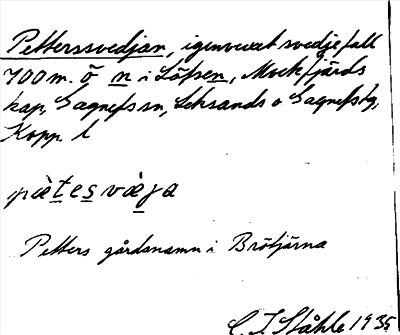 Petterssvedjan, igenvuxet svedjefall
700 m. ö n i Löfsen, Mockfjärds
kap, Gagnefs sn, Leksands o Gagnefs tg,
Kopp. l
pàtesvàga
Petters gårdsnamn i Brötjärna
C. I. Ståhle 1935